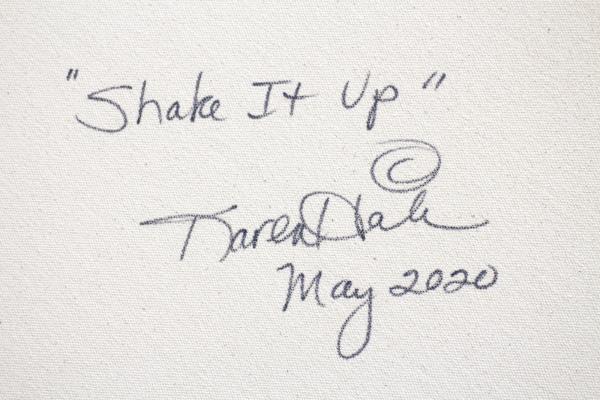 "Shake It Up"
©
Karen Hale
May 2020